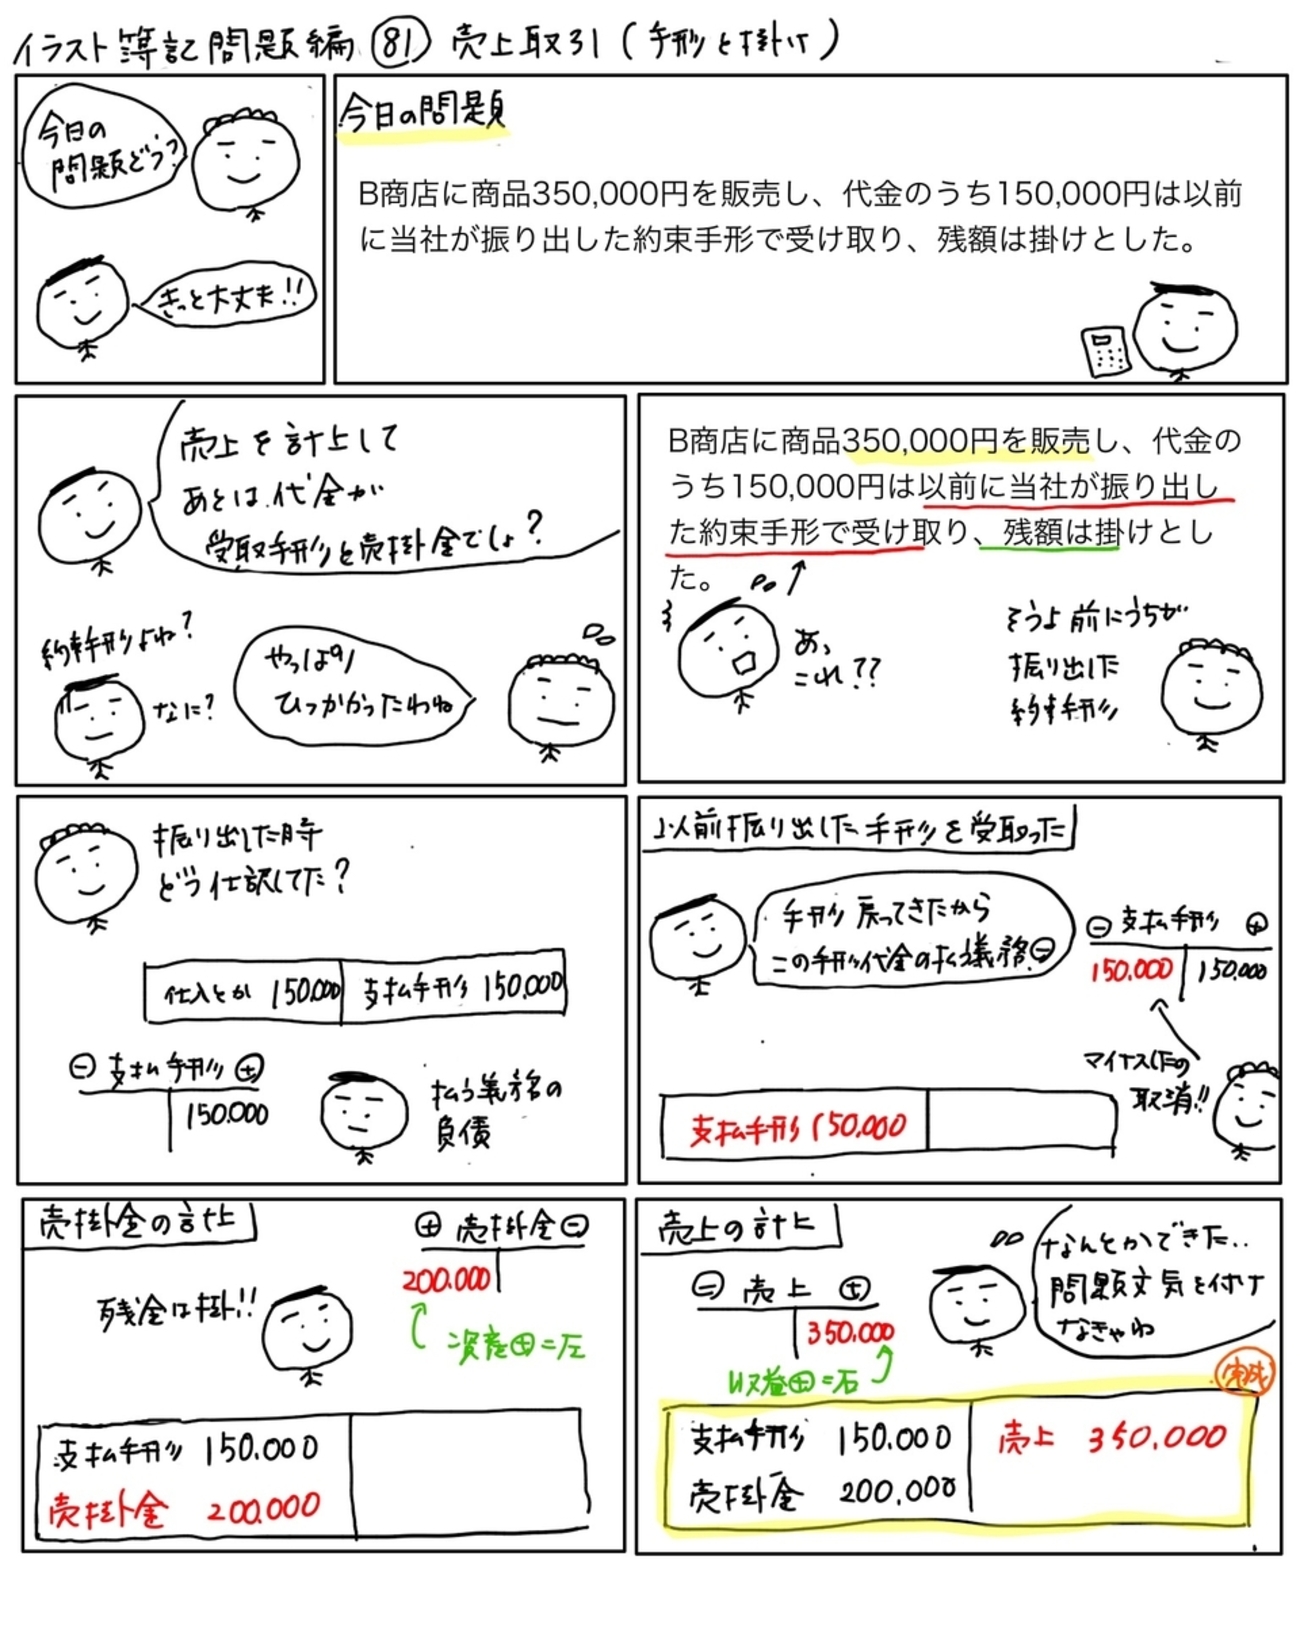 イラスト簿記問題編 81 売上取引(手形と掛け)
今日の
問題どう?
きっと大丈夫!!
今日の問題
B商店に商品350,000円を販売し、代金のうち150,000円は以前
に当社が振り出した約束手形で受け取り、残額は掛けとした。
売上を計上して
あとは代金が
受取手形と売掛金でしょ?
約束手形よね?
なに?
やっぱり
ひっかかったわね
B商店に商品350,000円を販売し、代金の
うち150,000円は以前に当社が振り出し
た約束手形で受け取り、残額は掛けとし
た。
あ、
これ??
そうよ前にうちが
振り出した
約束手形
振り出した時
どう仕訳してた?
仕入とか 150.000 支払手形 150.000
⊖ 支払手形 ⊕
150.000
払う義務の
負債
以前振り出した手形を受取った
手形戻ってきたから
この手形代金の払う義務⊖
⊖ 支払手形 ⊕
150.000 150.000
マイナスしたの
取消!!
支払手形 150.000
売掛金の計上
⊕ 売掛金 ⊖
200.000
残金は掛!!
資産⊕=左
支払手形 150.000
売掛金 200.000
売上の計上
⊖ 売上 ⊕
350.000
収益⊕=右
なんとかできた..
問題文気を付け
なきゃね
完成
支払手形 150.000 売上 350.000
売掛金 200.000